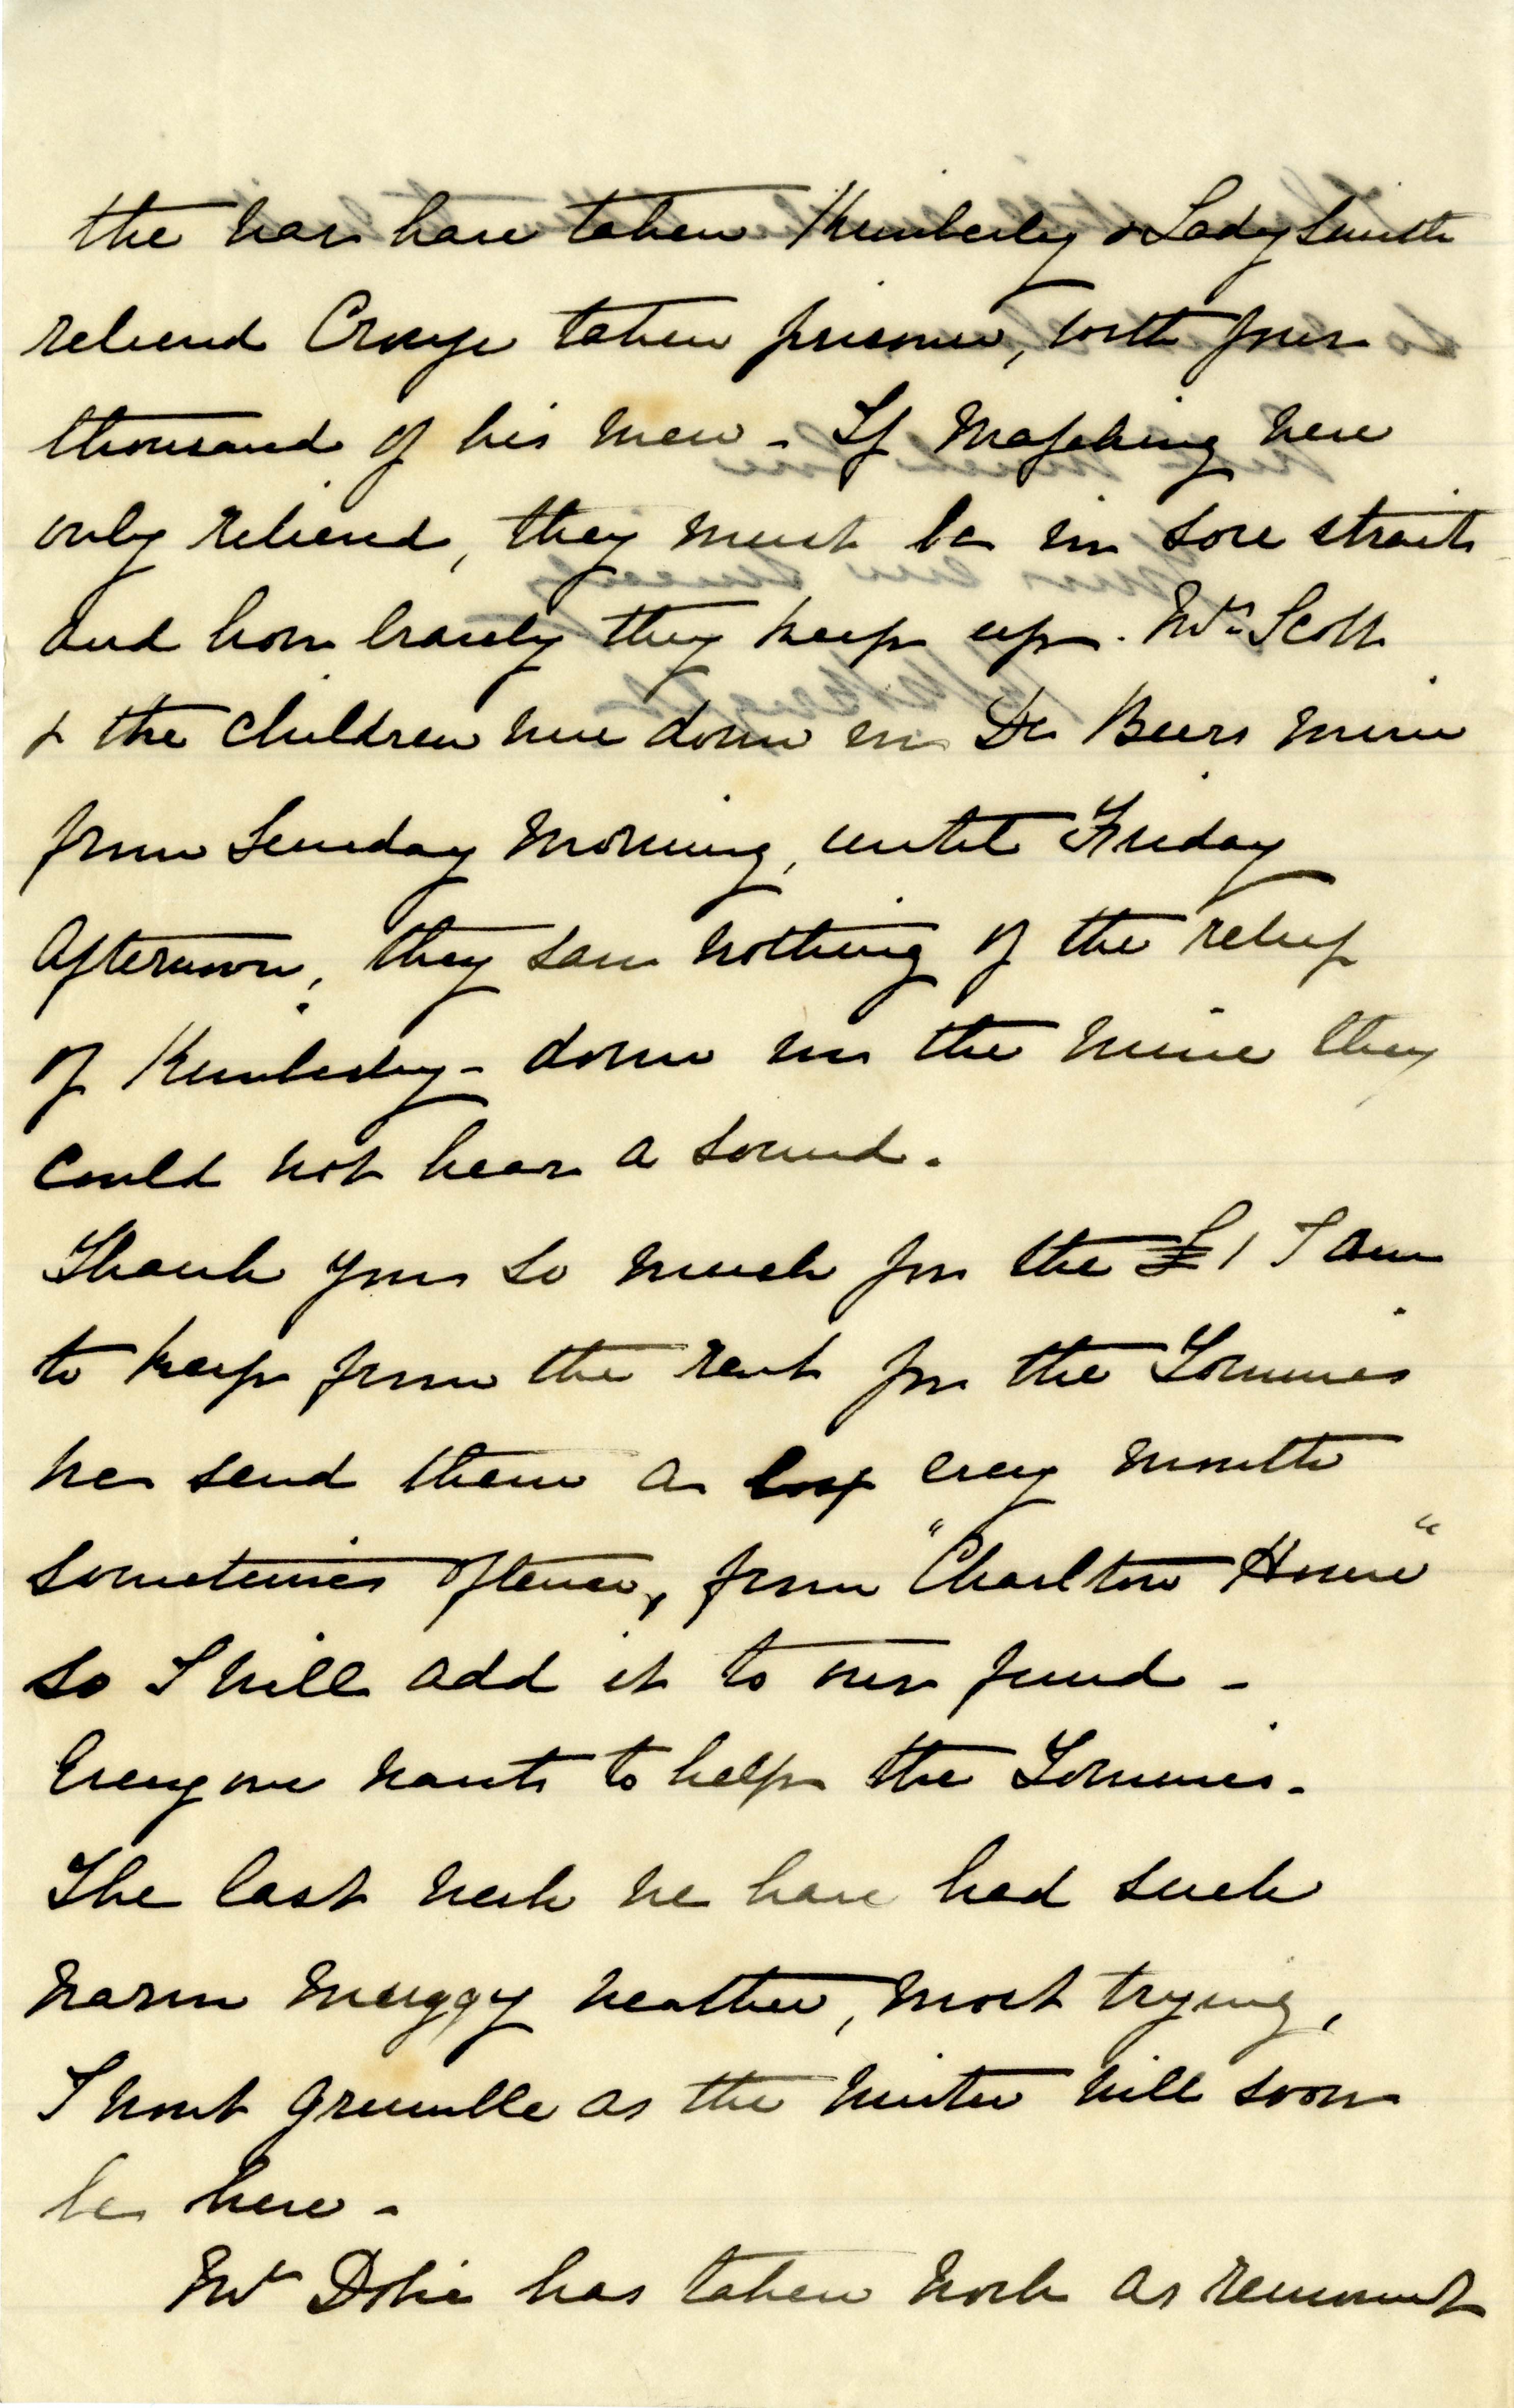 the war have taken Kimberley & LadySmith
relieved Cronje taken prisoner, with four
thousand of his men - If Mafeking were
only relieved, they must be in sore straits
and how bravely they keep up. Mrs Scott
& the children were down in De Beers mine
from Sunday morning, until Friday
afternoon, they saw nothing of the relief
of Kimberley - down in the mine they
could not hear a sound.
Thank you so much for the £1 I am
to keep from the rent for the Tommies
we send them a box every month
sometimes oftener, from "Charlton House"
so I will add it to our fund -
Everyone wants to help the Tommies -
The last week we have had such
warm muggy weather, most trying,
I wont grumble as the winter will soon
be here -
Mr Dobie has taken work as remount